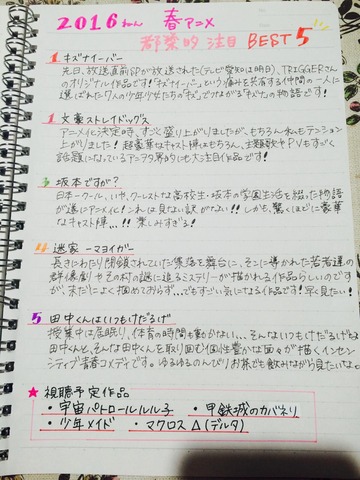 2016ねん 春アニメ
都築的 注目 BEST5
1 キズナイーバー
先日、放送直前SPが放送された(テレビ愛知は明日)、TRIGGERさん
のオリジナル作品です!「キズナイーバー」という痛みを共有する仲間の一人に
選ばれた7人の少年少女たちの「キズ」でつながる「キズナ」の物語です!
1 文豪ストレイドッグス
アニメ化決定時、すごく盛り上がりましたが、もちろん私もテンション
上がりました!超豪華なキャスト様はもちろん、主題歌やPVもすごく
話題になっているアニメ業界的にも大注目作品です!
3 坂本ですが?
日本一クール、いや、クーレストな高校生・坂本の学園生活を綴った物語
が遂にアニメ化!これは見ない訳がない!!しかも、驚くほどに豪華
なキャスト陣...!!楽しみすぎる!
4 迷家 -マヨイガ-
長きにわたり閉鎖されていた集落を舞台に、そこに導かれた若者達の
群像劇やその村の謎に迫るミステリーが描かれる作品らしいのです
が、未だによく掴めておらず...でもすごい気になる作品です!早く見たい!
5 田中くんはいつもけだるげ
授業中は居眠り、体育の時間も動かない...そんないつもけだるげな
田中くんと、そんな田中くんを取り囲む個性豊かな面々が描くインセン
シティブ青春コメディです。ゆるゆるのんびりお茶でも飲みながら見たいな。
★視聴予定作品
・宇宙パトロールルル子 ・甲鉄城のカバネリ
・少年メイド ・マクロスΔ(デルタ)